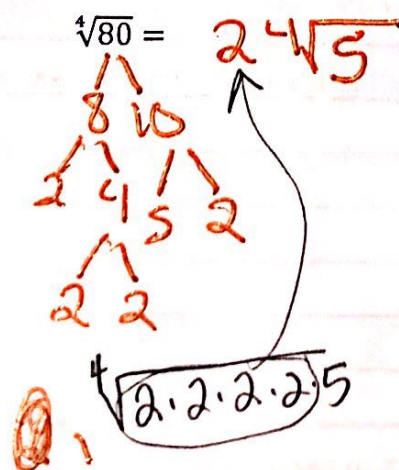 ∜80 = 2 ∜5
8 10
2 4 5 2
2 2
∜2·2·2·2·5